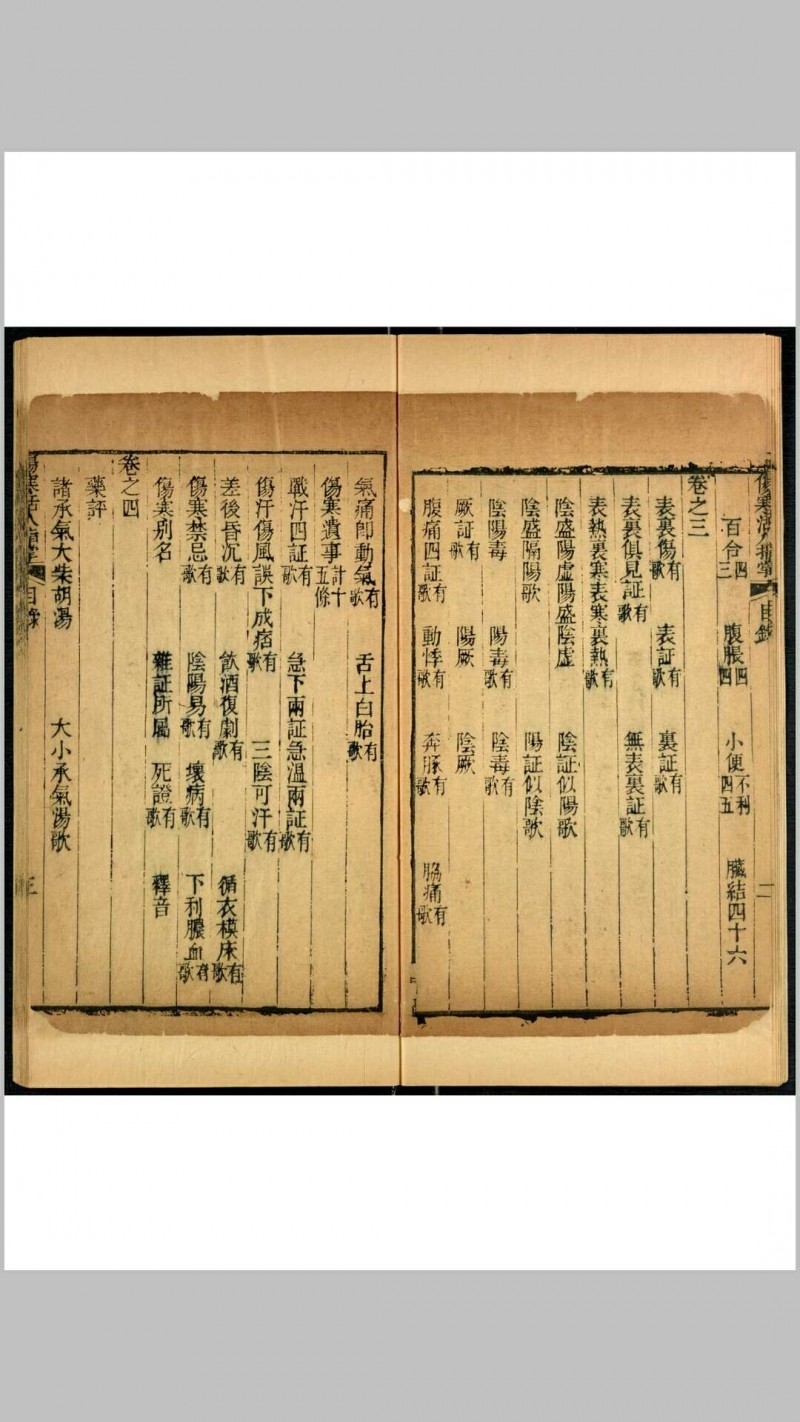 傷寒活人指掌 目錄 二
百合四三 腹脹四四 小便不利四五 臟結四十六
卷之三
表裏傷有歌 表証有歌 裏証有歌
表裏俱見証有歌 無表裏証有歌
表熱裏寒表寒裏熱有歌
陰盛陽虛陽盛陰虛 陰証似陽歌
陰盛隔陽歌 陽証似陰歌
陰陽毒 陽毒有歌 陰毒有歌
厥証有歌 陽厥 陰厥
腹痛四証有歌 動悸有歌 奔豚有歌 脇痛有歌
氣痛即動氣有歌 舌上白胎有歌
傷寒遺事計十五條
戰汗四証有歌 急下兩証急溫兩証有歌
傷汗傷風誤下成痞有歌 三陰可汗有歌
差後昏沉有歌 飲酒復劇有歌 循衣模床有歌
傷寒禁忌有歌 陰陽易有歌 壞病有歌 下利膿血有歌
傷寒別名 雜証所屬 死證有歌 釋音
卷之四
藥評
諸承氣大柴胡湯 大小承氣湯歌
目錄 三